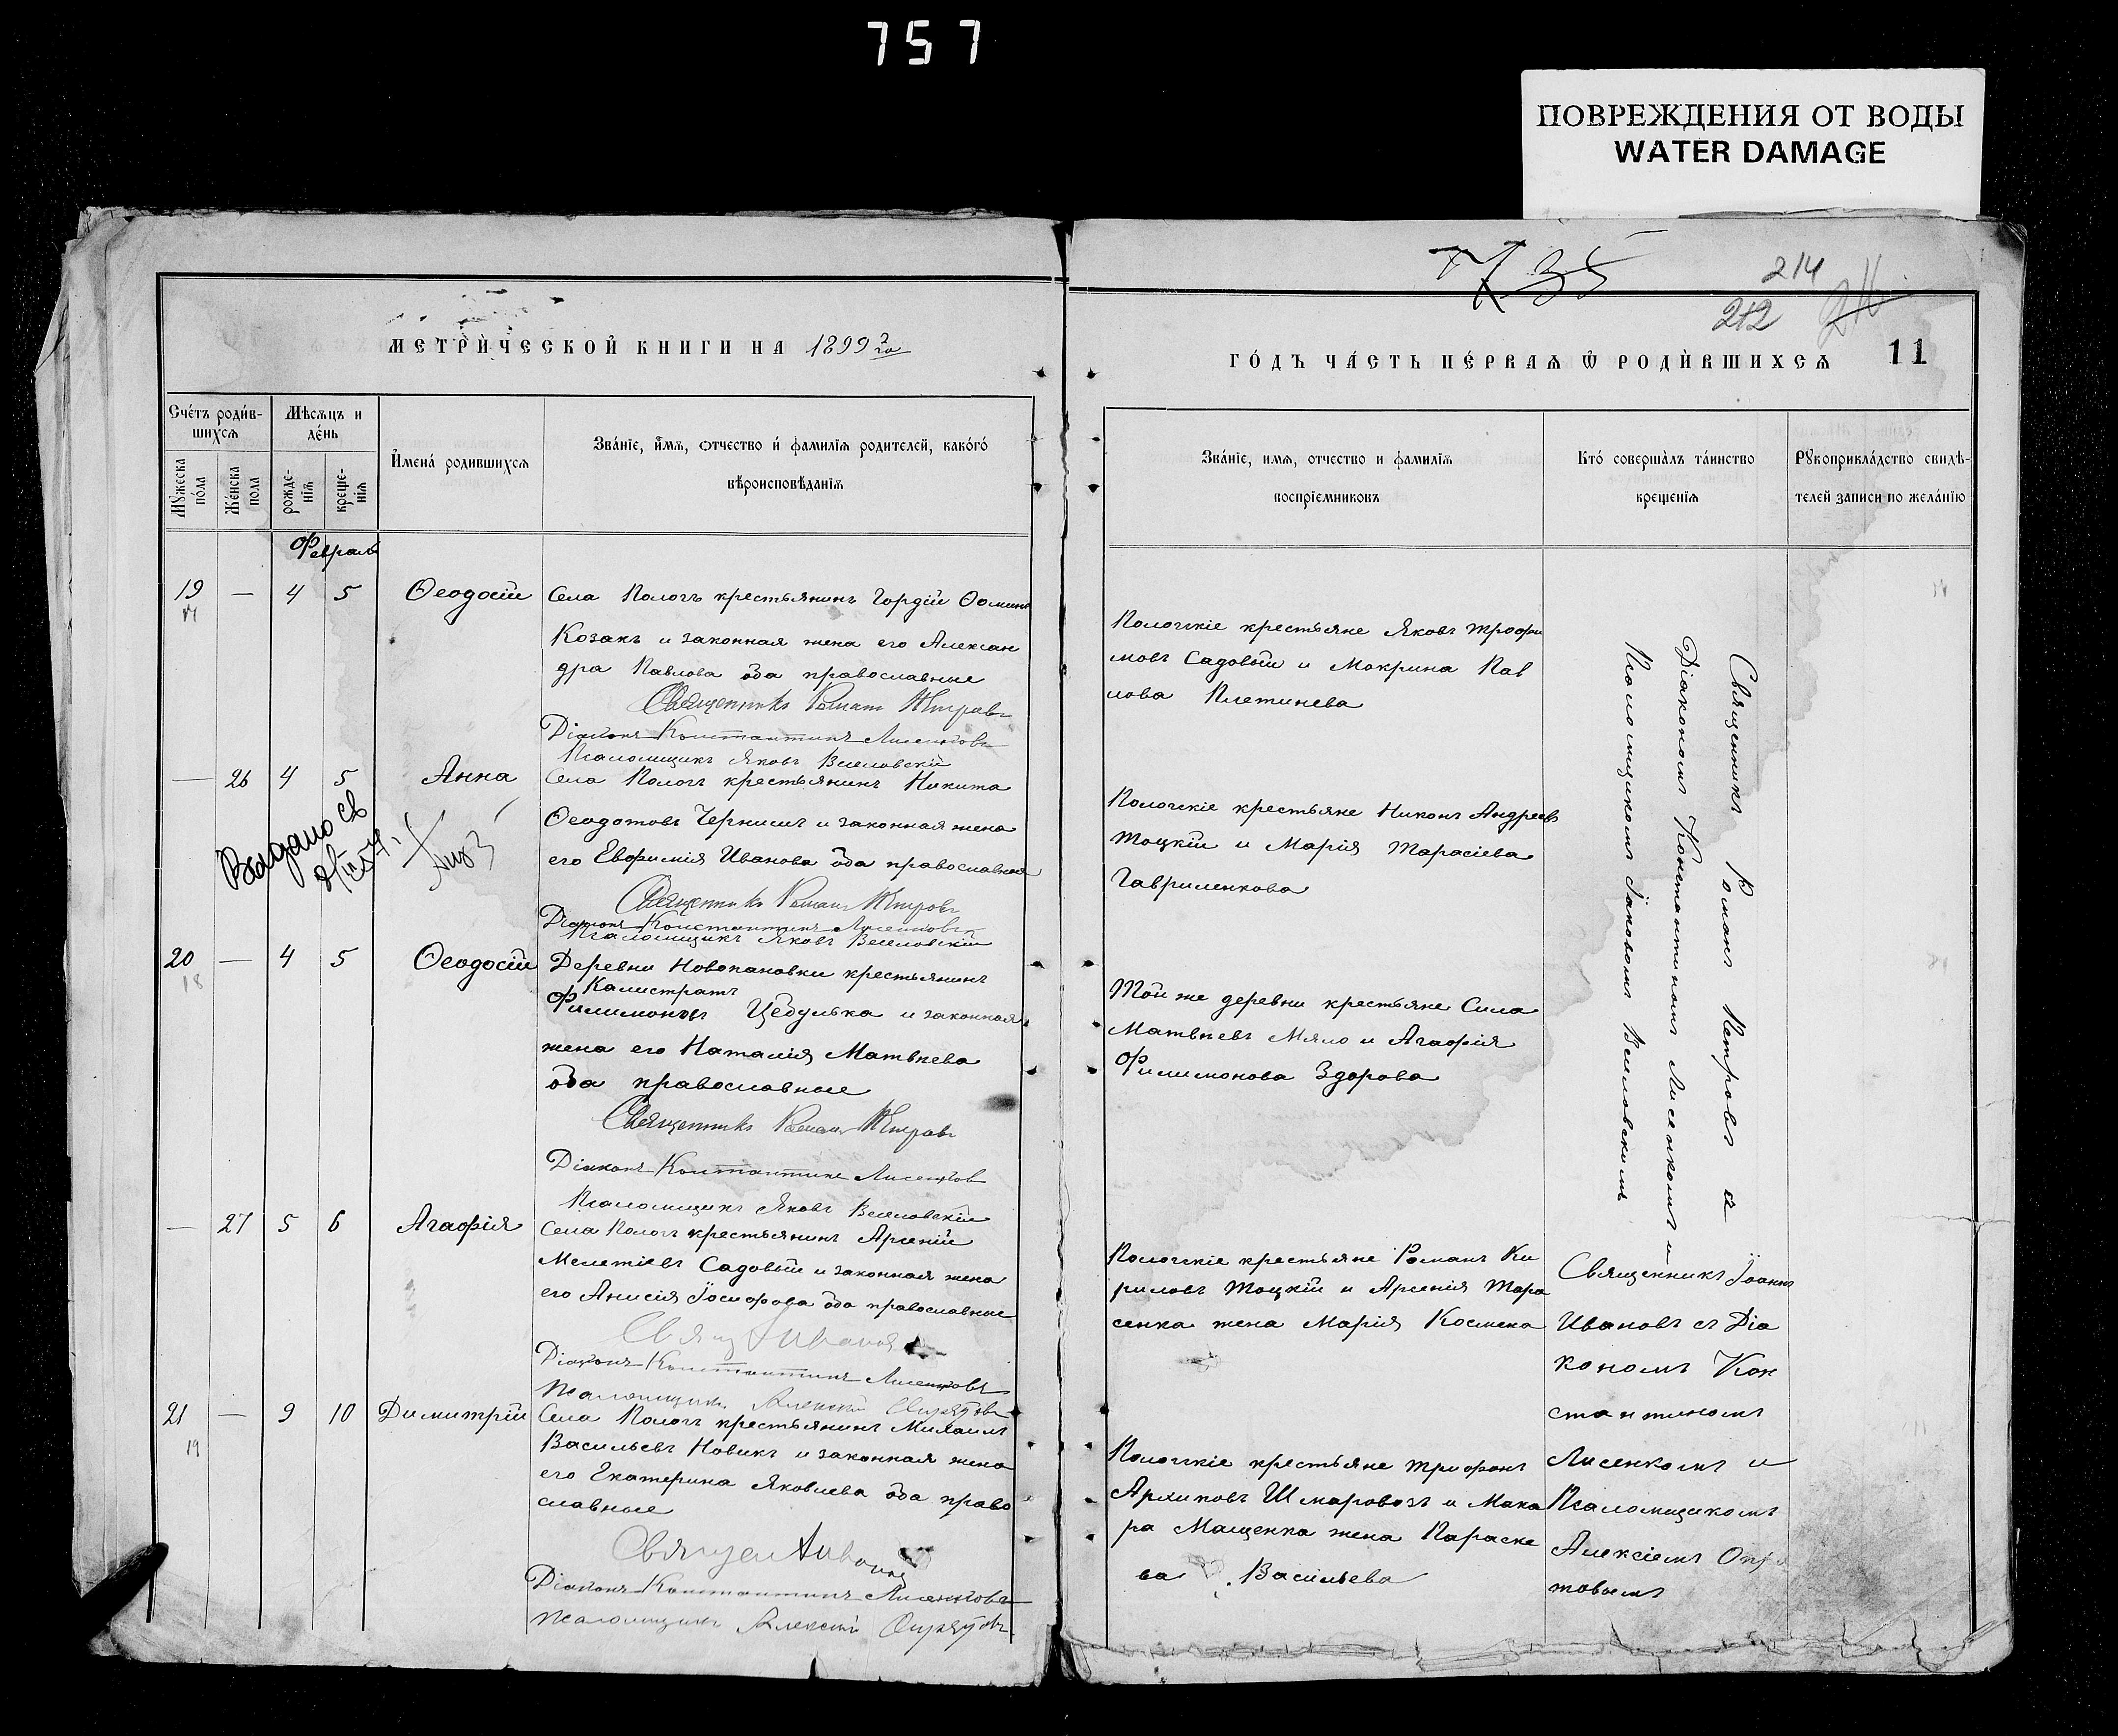 757
ПОВРЕЖДЕНИЯ ОТ ВОДЫ
WATER DAMAGE
735
214
212
МЕТРИ́ЧЕСКОЙ КНИГИ НА 1899 го
ГО́ДЪ ЧА́СТЬ ПЕ́РВАѦ Ѿ РОДИ́ВШИХСѦ
11
Сче́тъ роди́в-
шихсѧ
Мѣсѧцъ и
де́нь
Мꙋжеска
по́ла
Же́нска
пола
рожде-
нїѧ
креще-
нїѧ
И҆мена́ родившихсѧ
Зва́нїе, и҆́мѧ, ѻтчество и́ фамилїѧ родителей, како́го́
вѣроисповѣ́данїѧ
Зва́нїе, имѧ, отчество и фамилїѧ
воспрїемниковъ
Кто́ соверша́лъ та́инство
крещенїѧ
Рꙋкоприкла́дство свидѣ-
телей записи по жела́нїю
Февраль
19 — 4 5 Ѳеодосій
Села Пологъ крестьянинъ Гордій Ѳоминъ
Козакъ и законная жена его Алексан
дра Павлова оба православные
Священникъ Романъ Петровъ
Діаконъ Константинъ Лисенковъ
Псаломщикъ Яковъ Веселовскій
Пологскіе крестьяне Яковъ Трофи
мовъ Садовый и Мокрина Пав
лова Плетинева
— 26 4 5 Анна
Села Пологъ крестьянинъ Никита
Ѳеодотовъ Чернышъ и законная жена
его Евфимія Иванова оба православные
Священникъ Романъ Петровъ
Діаконъ Константинъ Лисенковъ
Псаломщикъ Яковъ Веселовскій
Выдано св
Пологскіе крестьяне Никонъ Андреевъ
Тоцкій и Марія Тарасіева
Гавриленкова
20 — 4 5 Ѳеодосій
18
Деревни Новопановки крестьянинъ
Калистратъ
Филимоновъ Цебулька и законная
жена его Наталія Матвѣева
оба православные
Священникъ Романъ Петровъ
Діаконъ Константинъ Лисенковъ
Псаломщикъ Яковъ Веселовскій
Той же деревни крестьяне Сила
Матвѣевъ Мяло и Агафія
Филимонова Здорова
Священникъ Романъ Петровъ съ
Діакономъ Константиномъ Лисенкомъ и
Псаломщикомъ Іаковомъ Веселовскимъ
— 27 5 6 Агафія
Села Пологъ крестьянинъ Арсеній
Мелетіевъ Садовый и законная жена
его Анисія Іосифова оба православные
Свящ Иванов
Діаконъ Константинъ Лисенковъ
Псаломщикъ Алексій
Пологскіе крестьяне Романъ Ки
риловъ Тоцкій и Арсенія Тара
сенка жена Марія Космена
Священникъ Іоаннъ
Ивановъ съ Діа
кономъ Кон
стантиномъ
Лисенкомъ и
Псаломщикомъ
Алексіемъ
товымъ
21 — 9 10 Димитрій
19
Села Пологъ крестьянинъ Михаилъ
Васильевъ Новикъ и законная жена
его Екатерина Яковлева оба право
славные
Священ Иванов
Діаконъ Константинъ Лисенковъ
Псаломщикъ Алексій
Пологскіе крестьяне Трифонъ
Архиповъ Шмаровозъ и Мака
ра Мащенка жена Параске
ва Васильева